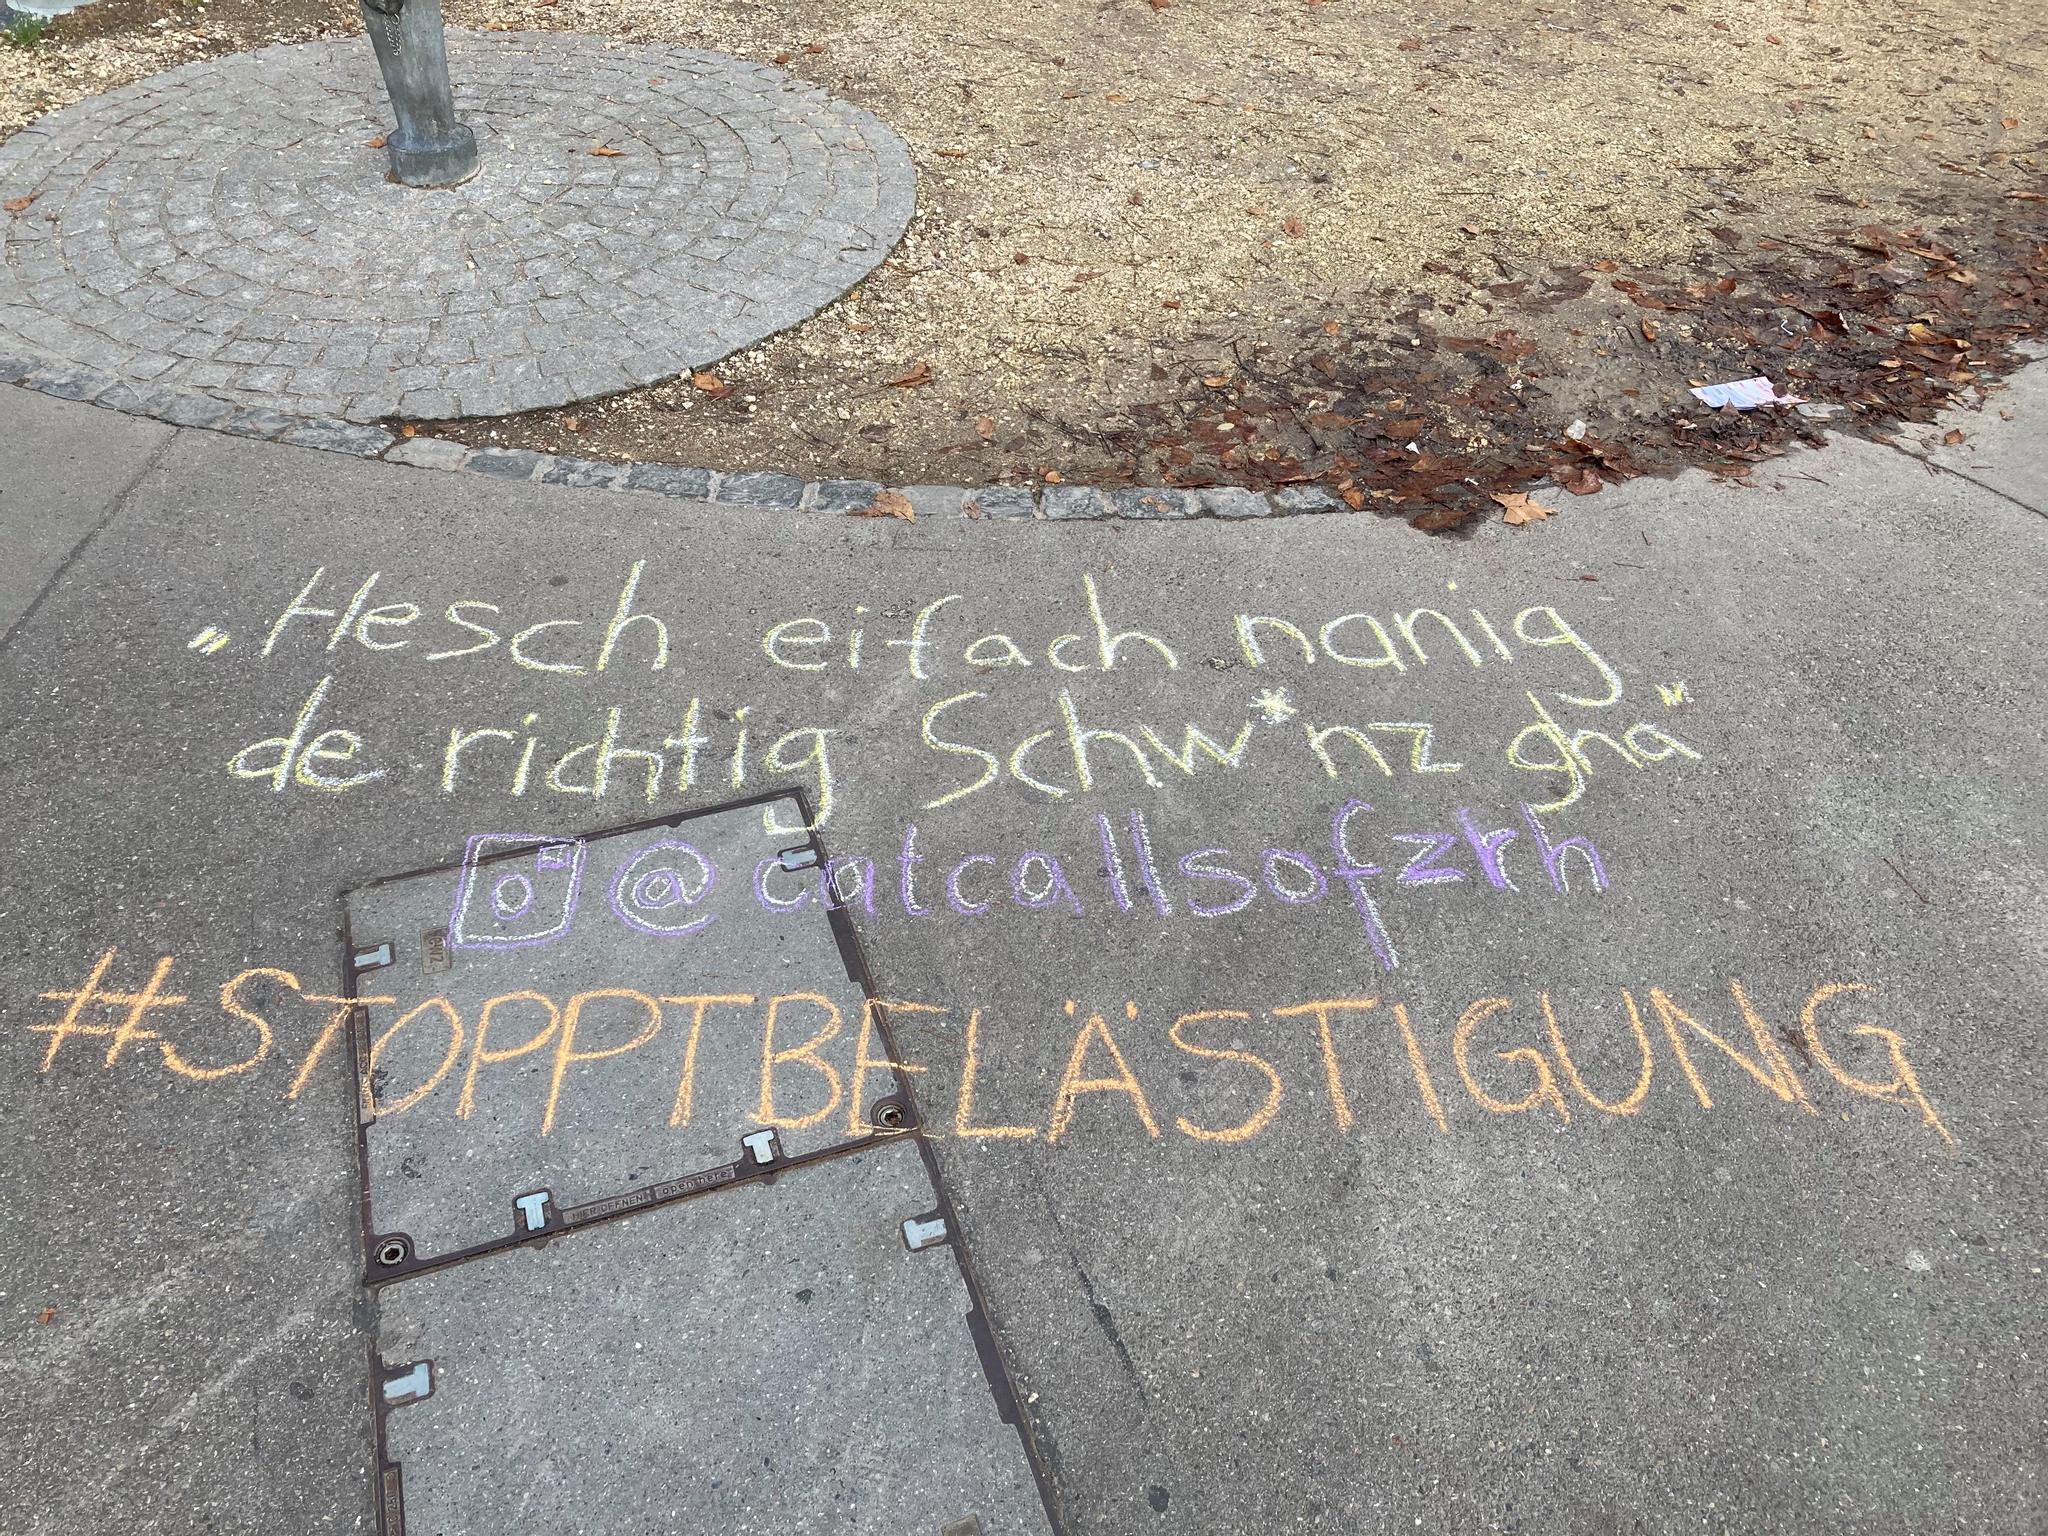 „Hesch eifach nanig
de richtig Schw*nz gha"
@catcallsofzrh
#STOPPTBELÄSTIGUNG
GANZ
HIER ÖFFNEN open here